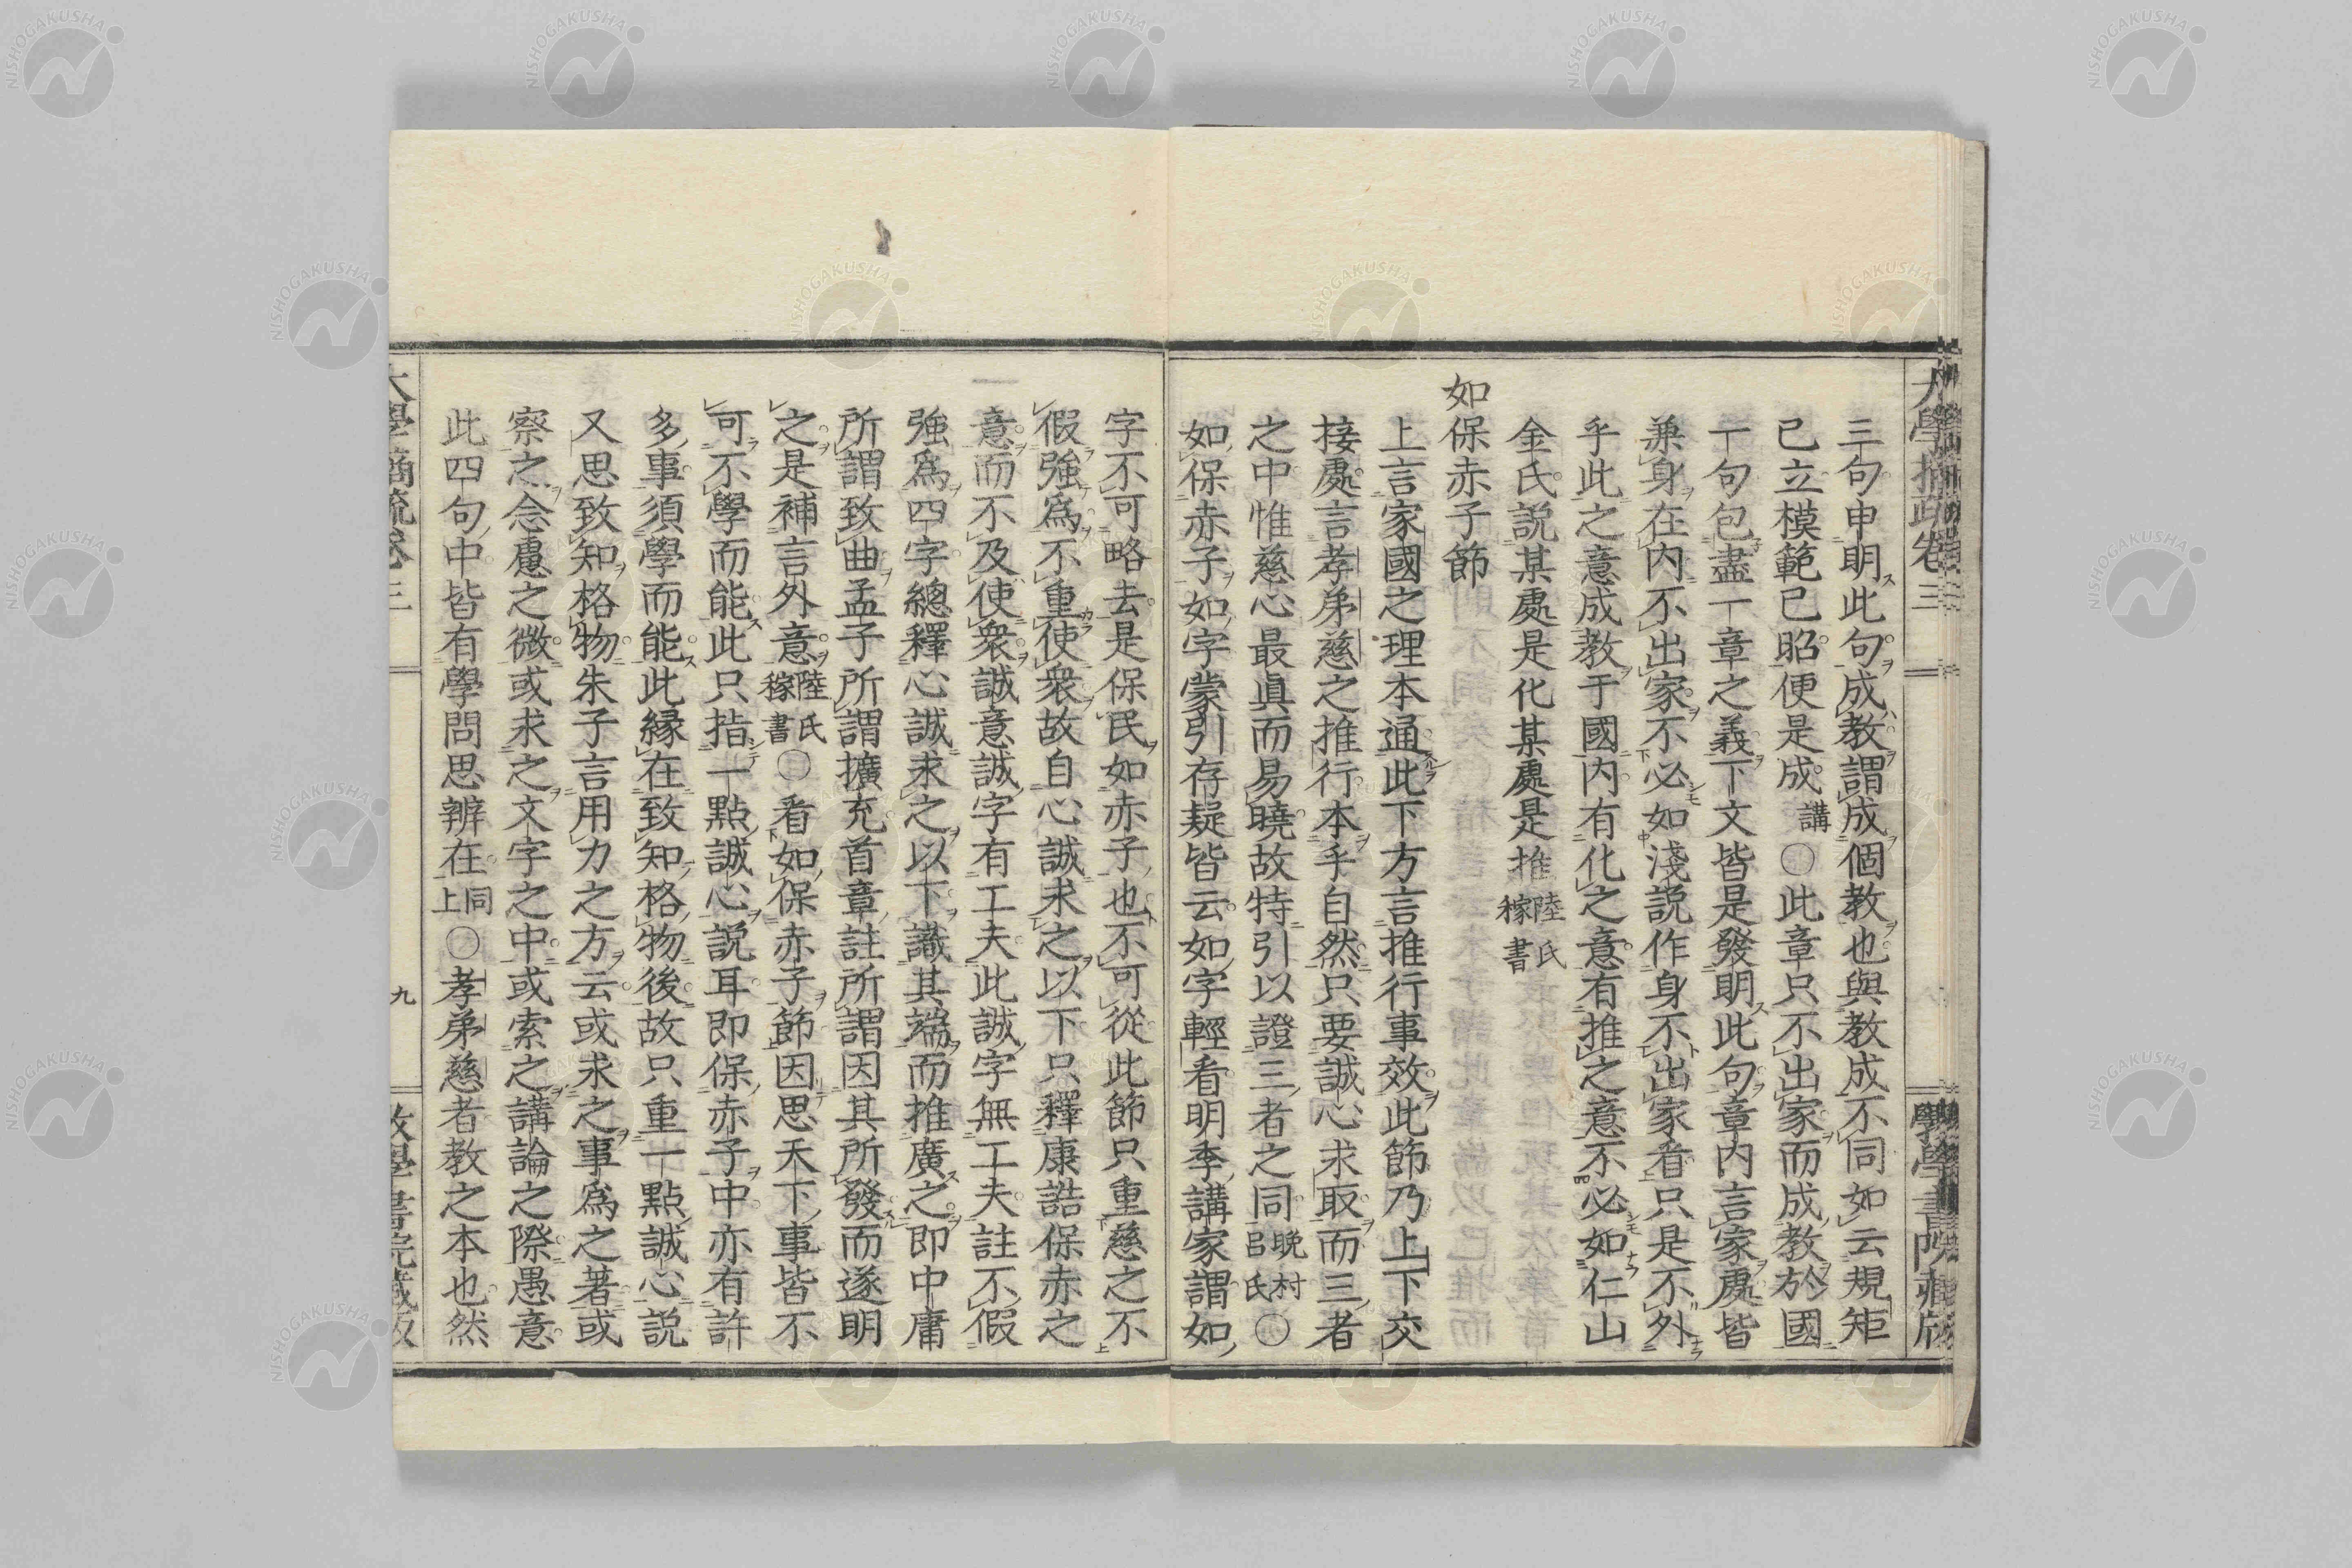 三句申明此句成教謂成個教也與教成不同如云規矩
已立模範已昭便是成講〇此章只不出家而成教於國
一句包盡一章之義下文皆是發明此句章内言家處皆
兼身在内不出家不必如淺説作身不出家看只是不外
乎此之意成教于國内有化之意有推之意不必如仁山
金氏説某處是化某處是推陸氏稼書
如保赤子節
上言家國之理本通此下方言推行事效此節乃上下交
接處言孝弟慈之推行本乎自然只要誠心求取而三者
之中惟慈心最眞而易曉故特引以證三者之同晩村呂氏〇
如保赤子如字蒙引存疑皆云如字輕看明季講家謂如
字不可略去是保民如赤子也不可從此節只重慈之不
假強爲不重使衆故自心誠求之以下只釋康誥保赤之
意而不及使衆誠意誠字有工夫此誠字無工夫註不假
強爲四字總釋心誠求之以下識其端而推廣之即中庸
所謂致曲孟子所謂擴充首章註所謂因其所發而遂明
之是補言外意陸氏稼書〇看如保赤子節因思天下事皆不
可不學而能此只指一點誠心説耳即保赤子中亦有許
多事須學而能此縁在致知格物後故只重一點誠心説
又思致知格物朱子言用力之方云或求之事爲之著或
察之念慮之微或求之文字之中或索之講論之際愚意
此四句中皆有學問思辨在同上〇孝弟慈者教之本也然
九